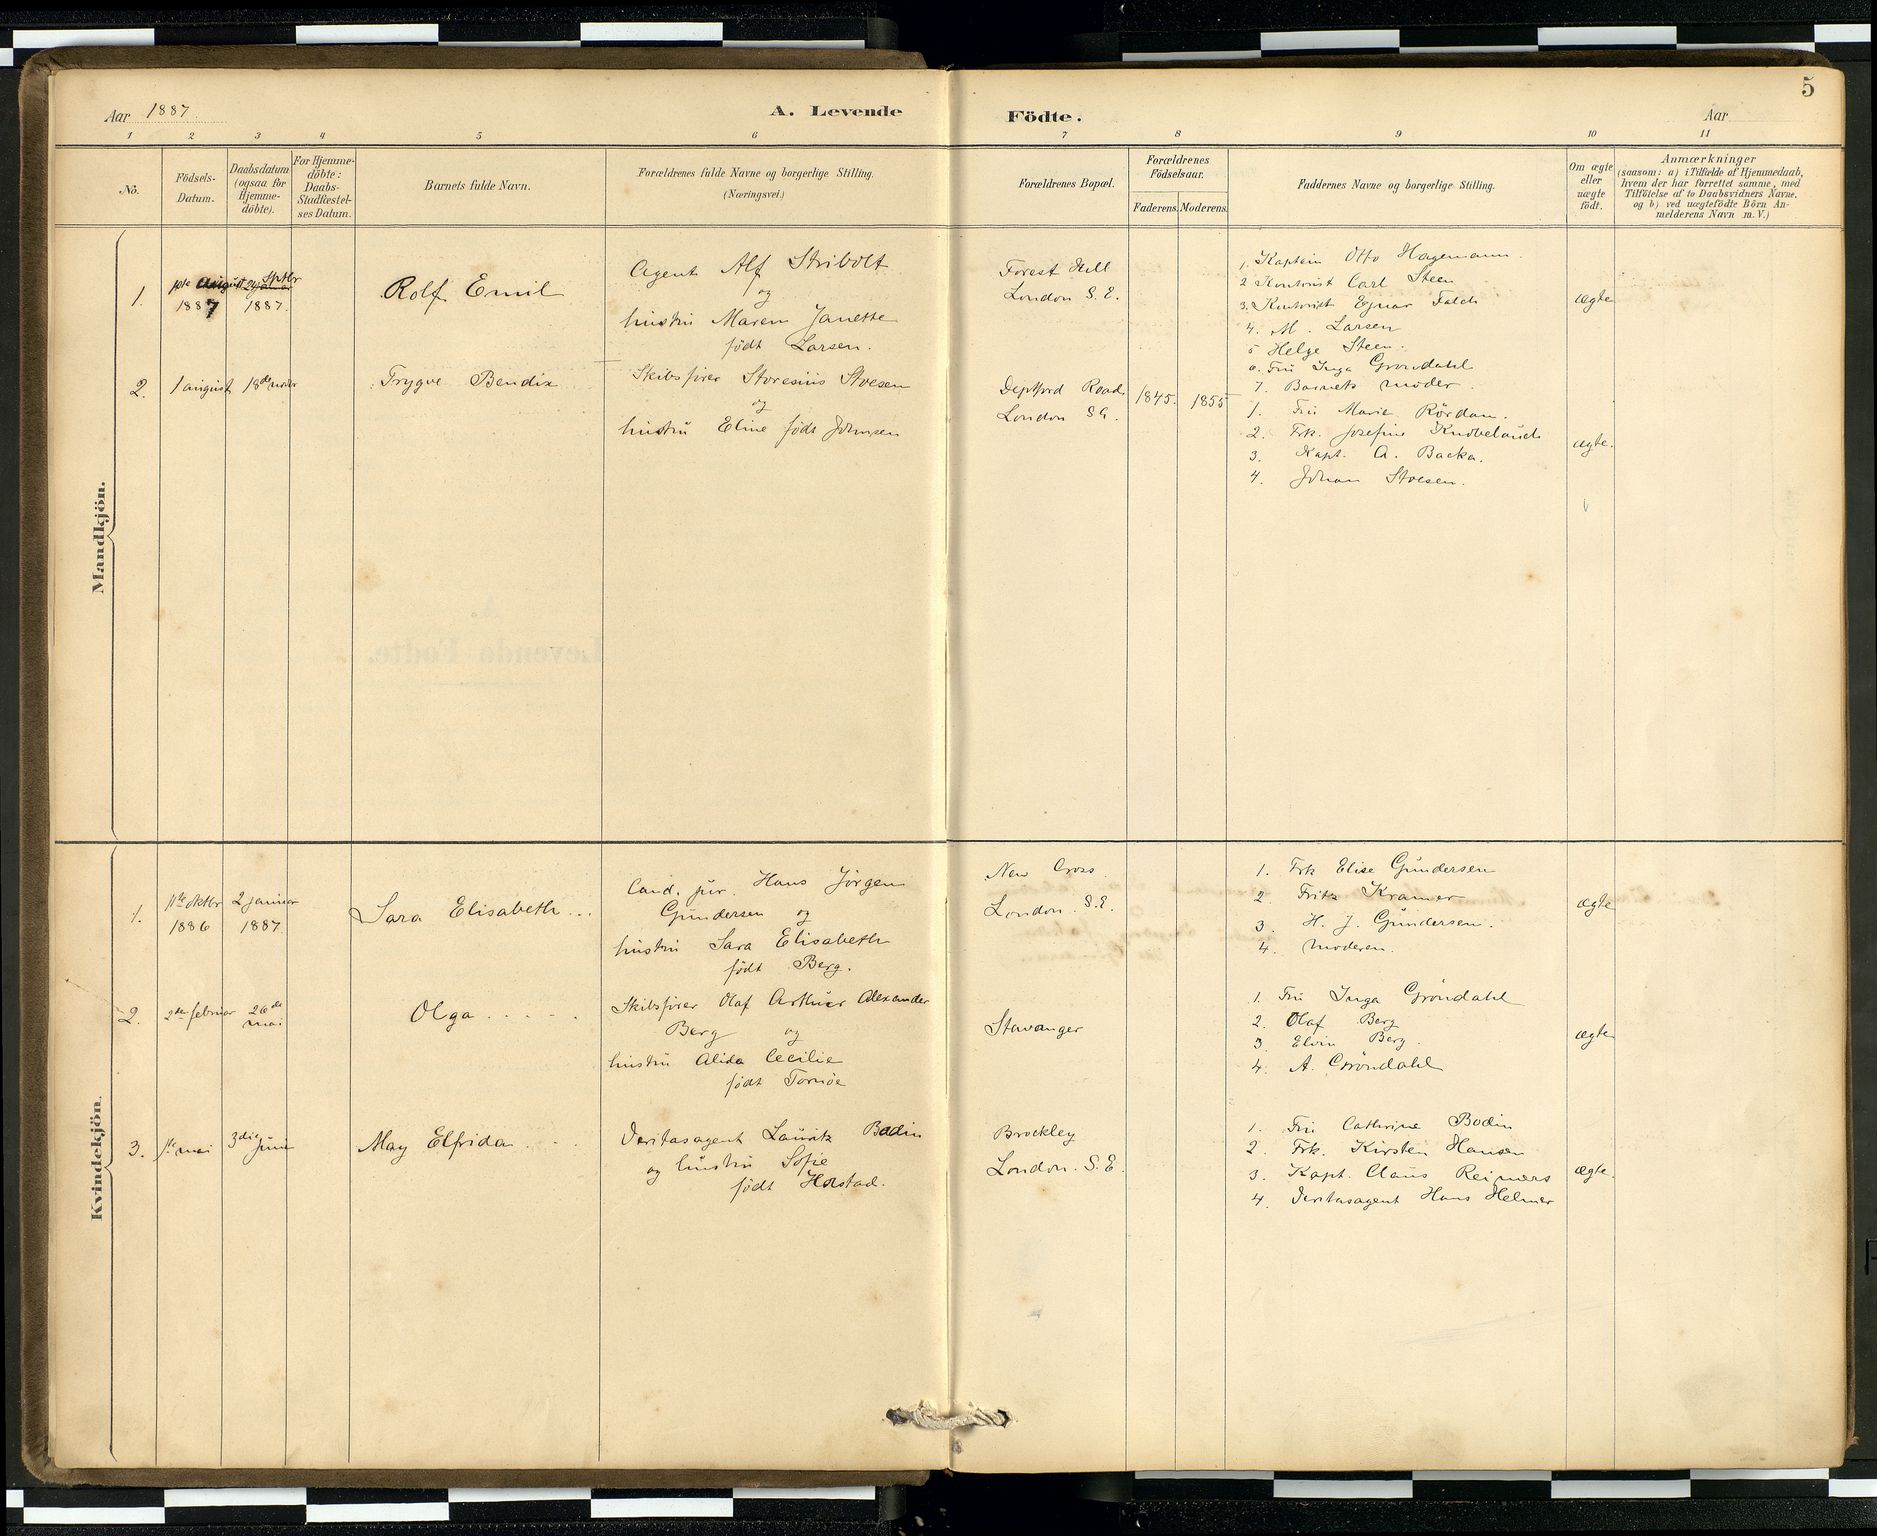 Aar 1887.
A. Levende
Födte.
Aar
5
1 2 3 4 5 6 7 8 9 10 11
No.
Födsels-
Datum.
Daabsdatum
(ogsaa for
Hjemme-
döbte).
For Hjemme-
döbte:
Daabs-
Stadfæstel-
ses Datum.
Barnets fulde Navn.
Forældrenes fulde Navne og borgerlige Stilling.
(Næringsvei.)
Forældrenes Bopæl.
Forældrenes
Födselsaar.
Faderens. Moderens.
Faddernes Navne og borgerlige Stilling.
Om ægte
eller
uægte
födt.
Anmærkninger
(saasom: a) i Tilfælde af Hjemmedaab,
hvem der har forrettet samme, med
Tilföielse af to Daabsvidners Navne,
og b) ved uægtefödte Börn An-
melderens Navn m. V.)
Mandkjön.
1.
august
1887
Septbr
1887.
Rolf Emil
Agent Alf Stribolt
og
hustru Maren Janette
født Larsen.
Forest Hill
London S. E.
1. Kaptein Otto Hagemann
2 Kontorist Carl Steen
3. Kontorist Ejnar Falch
4. M. Larsen
5 Helge Steen.
6. Fru Inga Grøndahl
7. Barnets moder.
ægte
2.
1 august
18de
Trygve Bendix
Skibsfører Storesius Stoesen
og
hustru Eline født Johnsen
Deptford Road
London S E.
1845.
1855
1. Fru Marie Rördam.
2. Frk. Josefine Knobelauch
3. Kapt. A. Backa.
4. Johan Stoesen.
ægte.
Kvindekjön.
1.
11te oktbr
1886
2 januar
1887.
Sara Elisabeth ...
Cand. jur. Hans Jörgen
Gundersen og
hustru Sara Elisabeth
født Berg.
New Cross
London. S. E.
1. Frk Elise Gundersen
2. Fritz Kramer
3. H. J. Gundersen.
4. moderen.
ægte
2.
2den februar
26de
mai
Olga . . . . .
Skibsfører Olaf Arthur Alexander
Berg og
hustru Alida Cecilie
født Tornöe
Stavanger
1. Fru Inga Gröndahl
2. Olaf Berg
3. Elvin Berg.
4. A. Gröndahl
ægte
3.
1ste mai
3die juni
May Elfrida . . .
Veritasagent Lauritz Bodin
og hustru Sofie
født Horstad.
Brockley
London. S. E.
1. Fru Cathrine Bodin
2. Frk. Kirsten Hansen
3. Kapt. Claus Reimers
4. Veritasagent Hans Helmer
ægte.